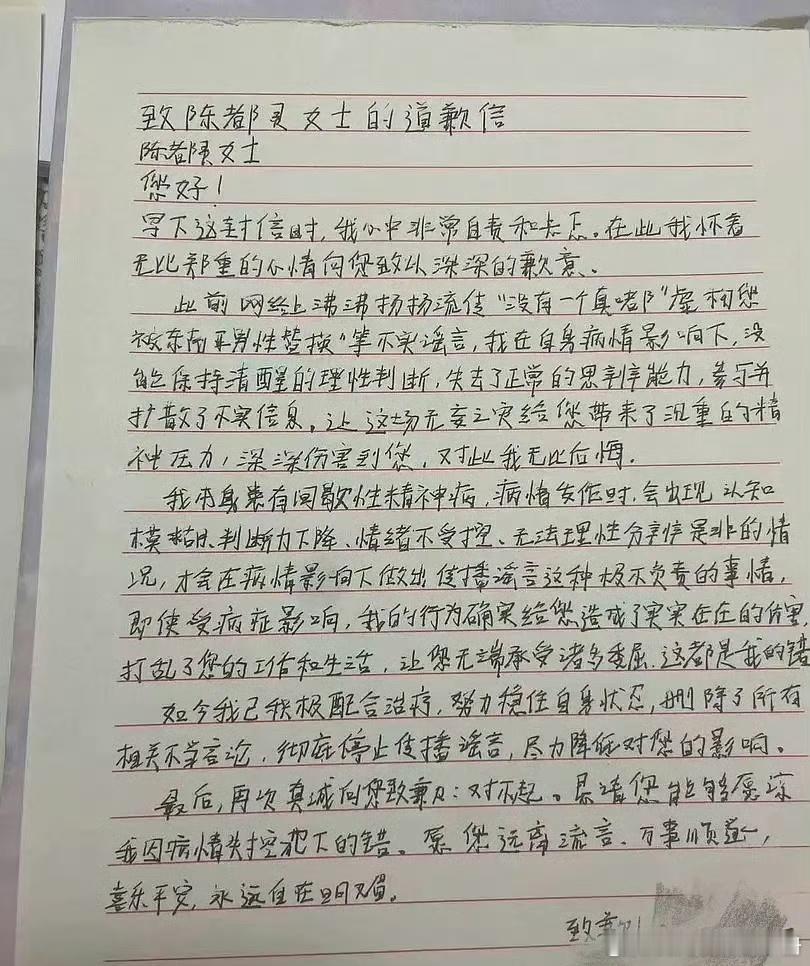 致陈都灵女士的道歉信
陈都灵女士
您好！
写下这封信时，我心中非常自责和忐忑。在此我怀着
无比郑重的心情向您致以深深的歉意。
此前网络上沸沸扬扬流传“没有一个真嘟”虚构您
被东南亚男性替换”等不实谣言，我在自身病情影响下，没
能保持清醒的理性判断，失去了正常的思辨能力，参与并
扩散了不实信息。让这场无妄之灾给您带来了沉重的精
神压力，深深伤害到您，对此我无比后悔.
我本身患有间歇性精神病，病情发作时，会出现认知
模糊、判断力下降、情绪不受控、无法理性分辨是非的情
况，才会在病情影响下做出传播谣言这种极不负责的事情，
即使受病症影响，我的行为确实给您造成了实实在在的伤害，
打乱了您的工作和生活，让您无端承受诸多委屈.这都是我的错
如今我已积极配合治疗，努力稳住自身状态，删除了所有
相关不当言论，彻底停止传播谣言，尽力降低对您的影响。
最后，再次真诚向您致歉：对不起。恳请您能够原谅
我因病情失控犯下的错。愿您远离流言、万事顺遂，
喜乐平安，永远自在明媚。
致歉人